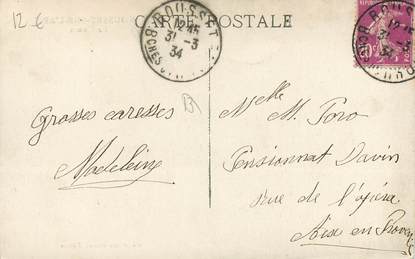 12 €
CARTE POSTALE
ROUSSET
12 15
31 -3
34
Bches
ROUSSET
12 15
31 -3
34
Grosses caresses
Madeleine
Melle M. Poro
Pensionnat Davin
rue de l'opéra
Aix en Provence